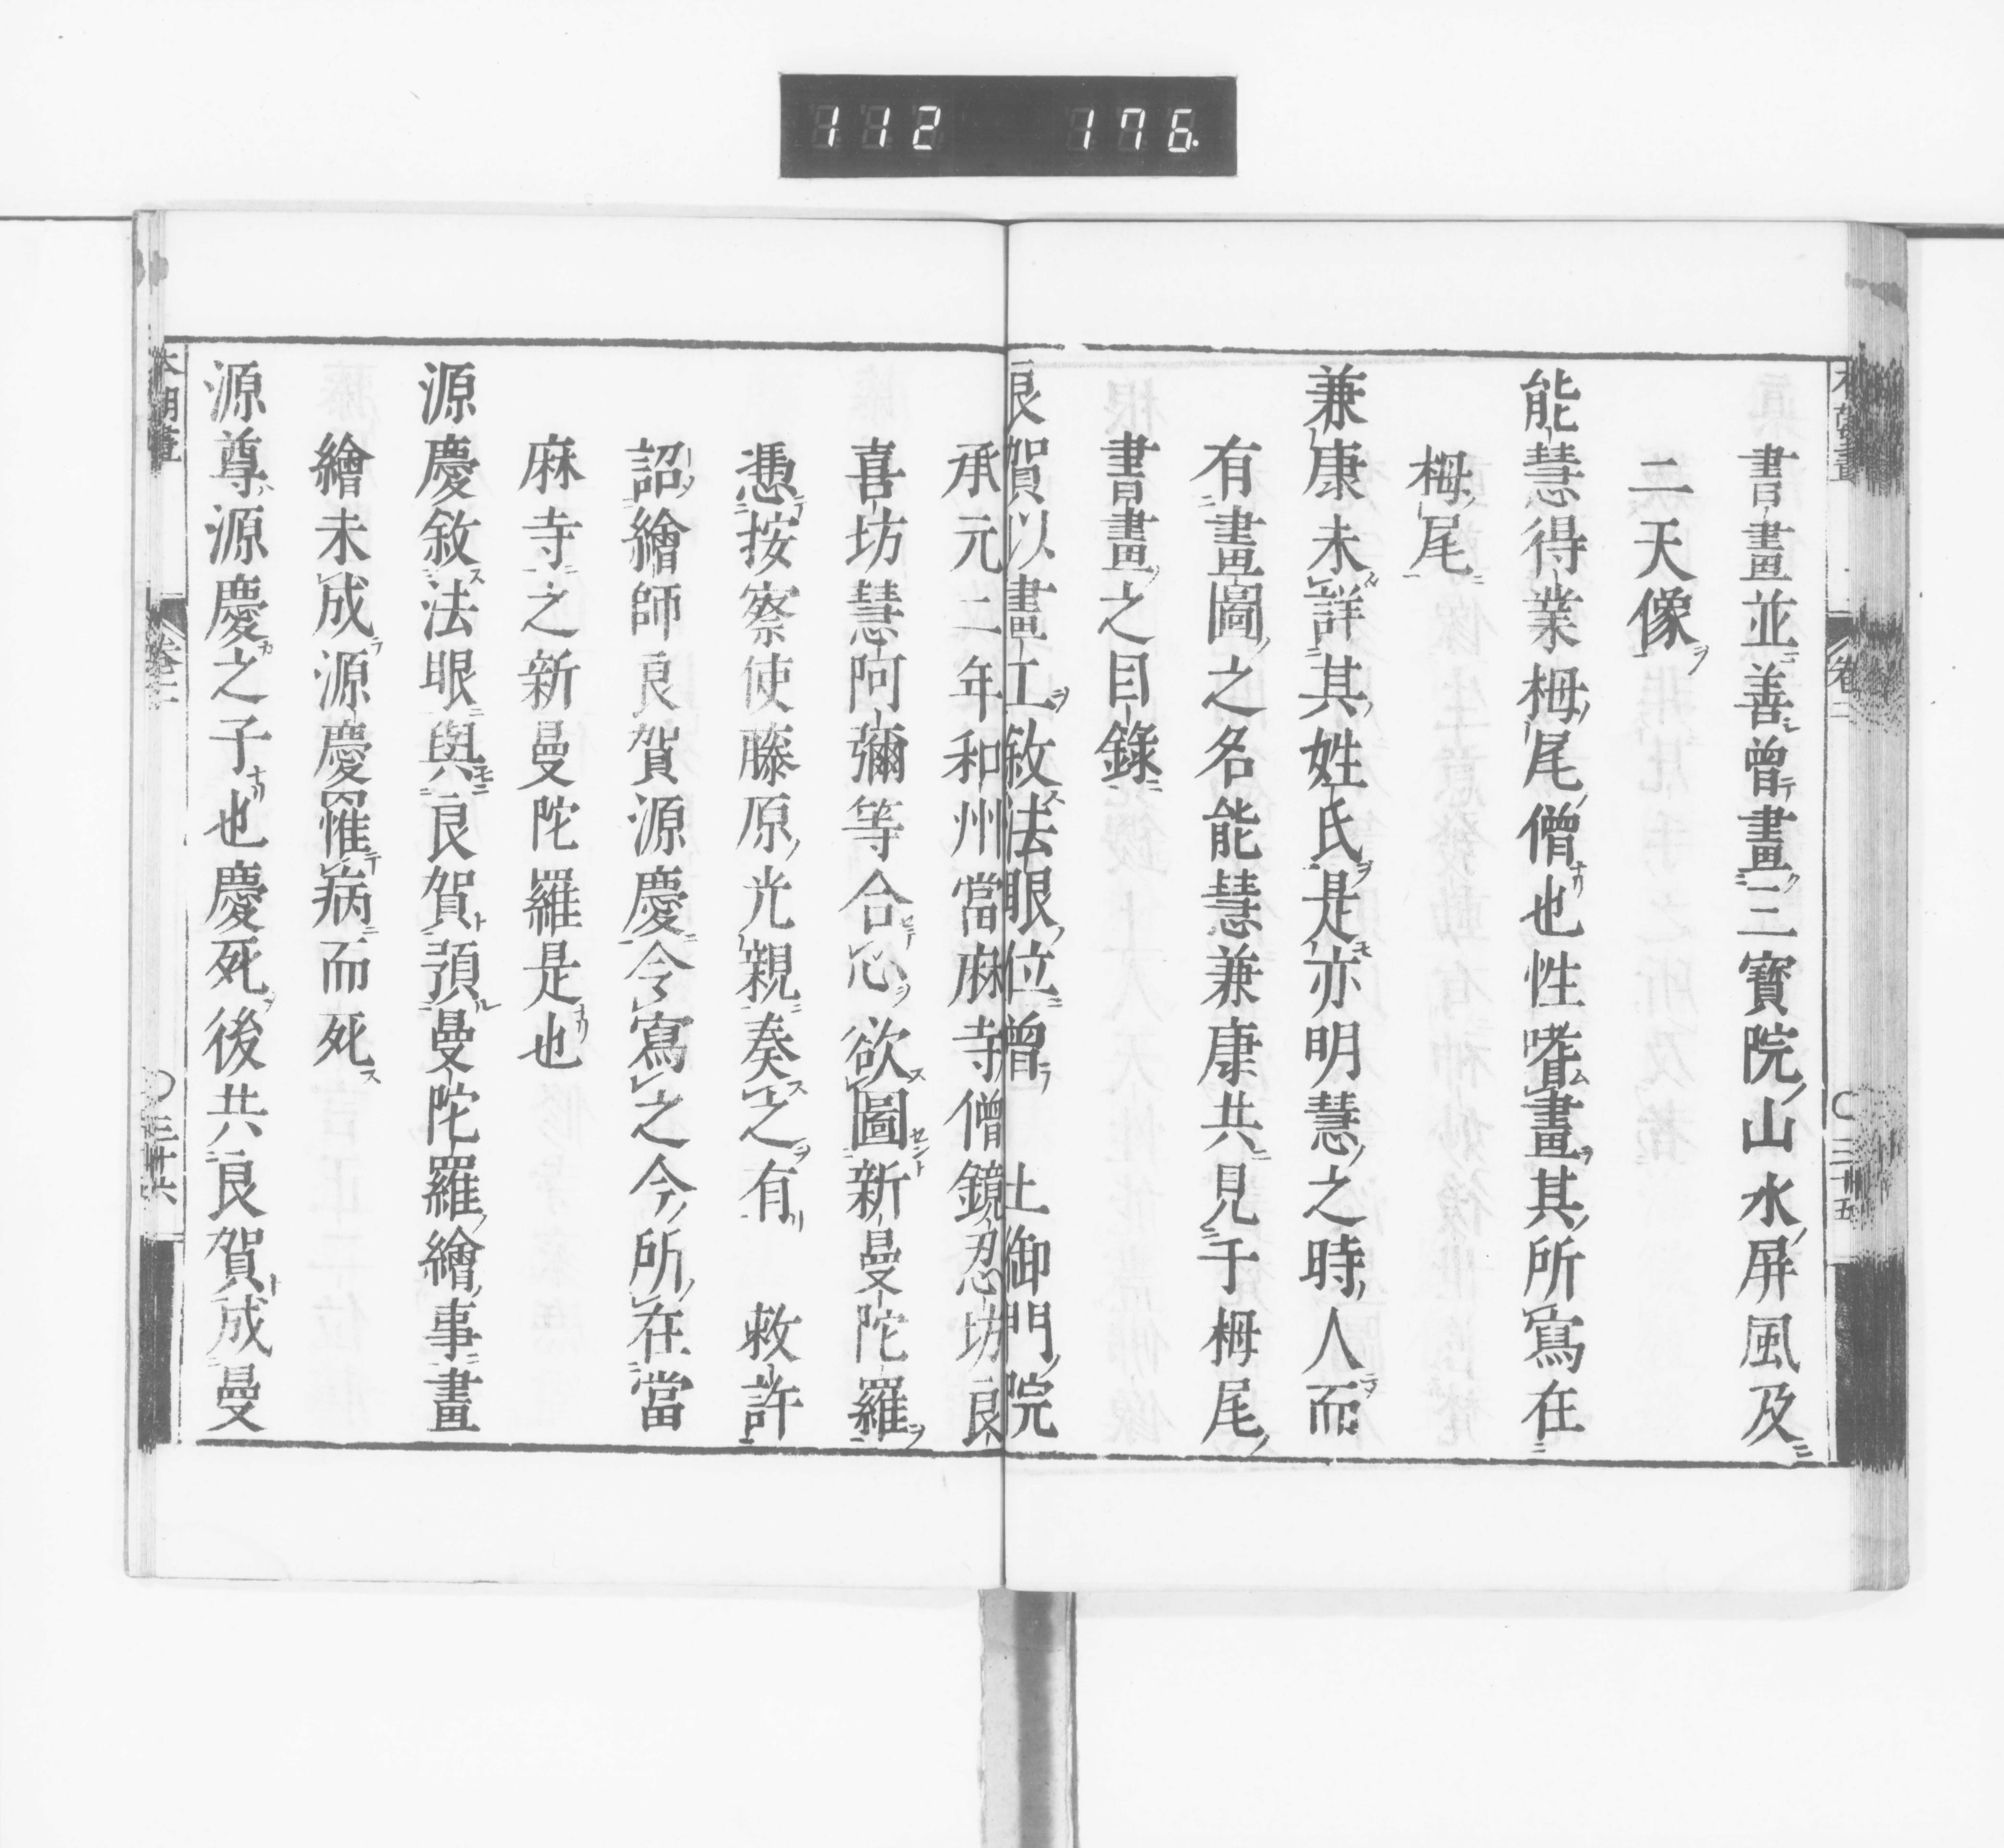 112 176.
書畫並善曾畫三寶院山水屏風及
二天像
能慧得業栂尾僧也性嗜畫其所寫在
栂尾
兼康未詳其姓氏是亦明慧之時人而
有畫圖之名能慧兼康共見于栂尾
書畫之目錄
良賀以畫工敘法眼位曾 土御門院
承元二年和州當麻寺僧鏡忍坊良
喜坊慧阿彌等合心欲圖新曼陀羅
憑按察使藤原光親奏之有 敕許
詔繪師良賀源慶令寫之今所在當
麻寺之新曼陀羅是也
源慶敘法眼與良賀預曼陀羅繪事畫
繪未成源慶罹病而死
源尊源慶之子也慶死後共良賀成曼
本朝畫
卷二
三十六